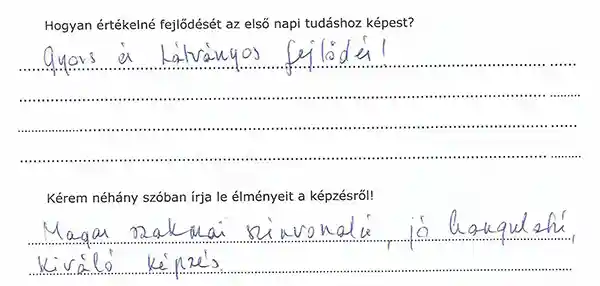 Hogyan értékelné fejlődését az első napi tudáshoz képest?
Gyors és látványos fejlődés!
Kérem néhány szóban írja le élményeit a képzésről!
Magas szakmai szinvonalú, jó hangulatú,
kiváló képzés.